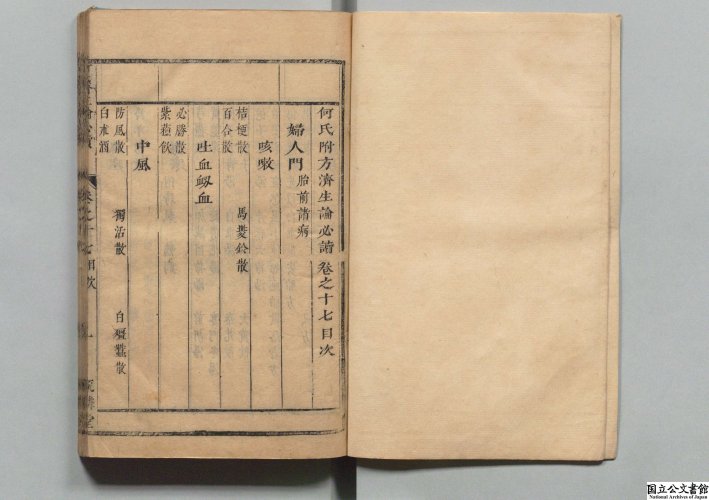 何氏附方濟生論必讀卷之十七目次
婦人門 胎前諸病
咳嗽
桔梗散 馬兜鈴散
百合散
吐血衂血
必勝散
紫蘇飲
中風
防風散 獨活散 白殭蠶散
白朮酒
卷之十七目次 一
国立公文書館
National Archives of Japan